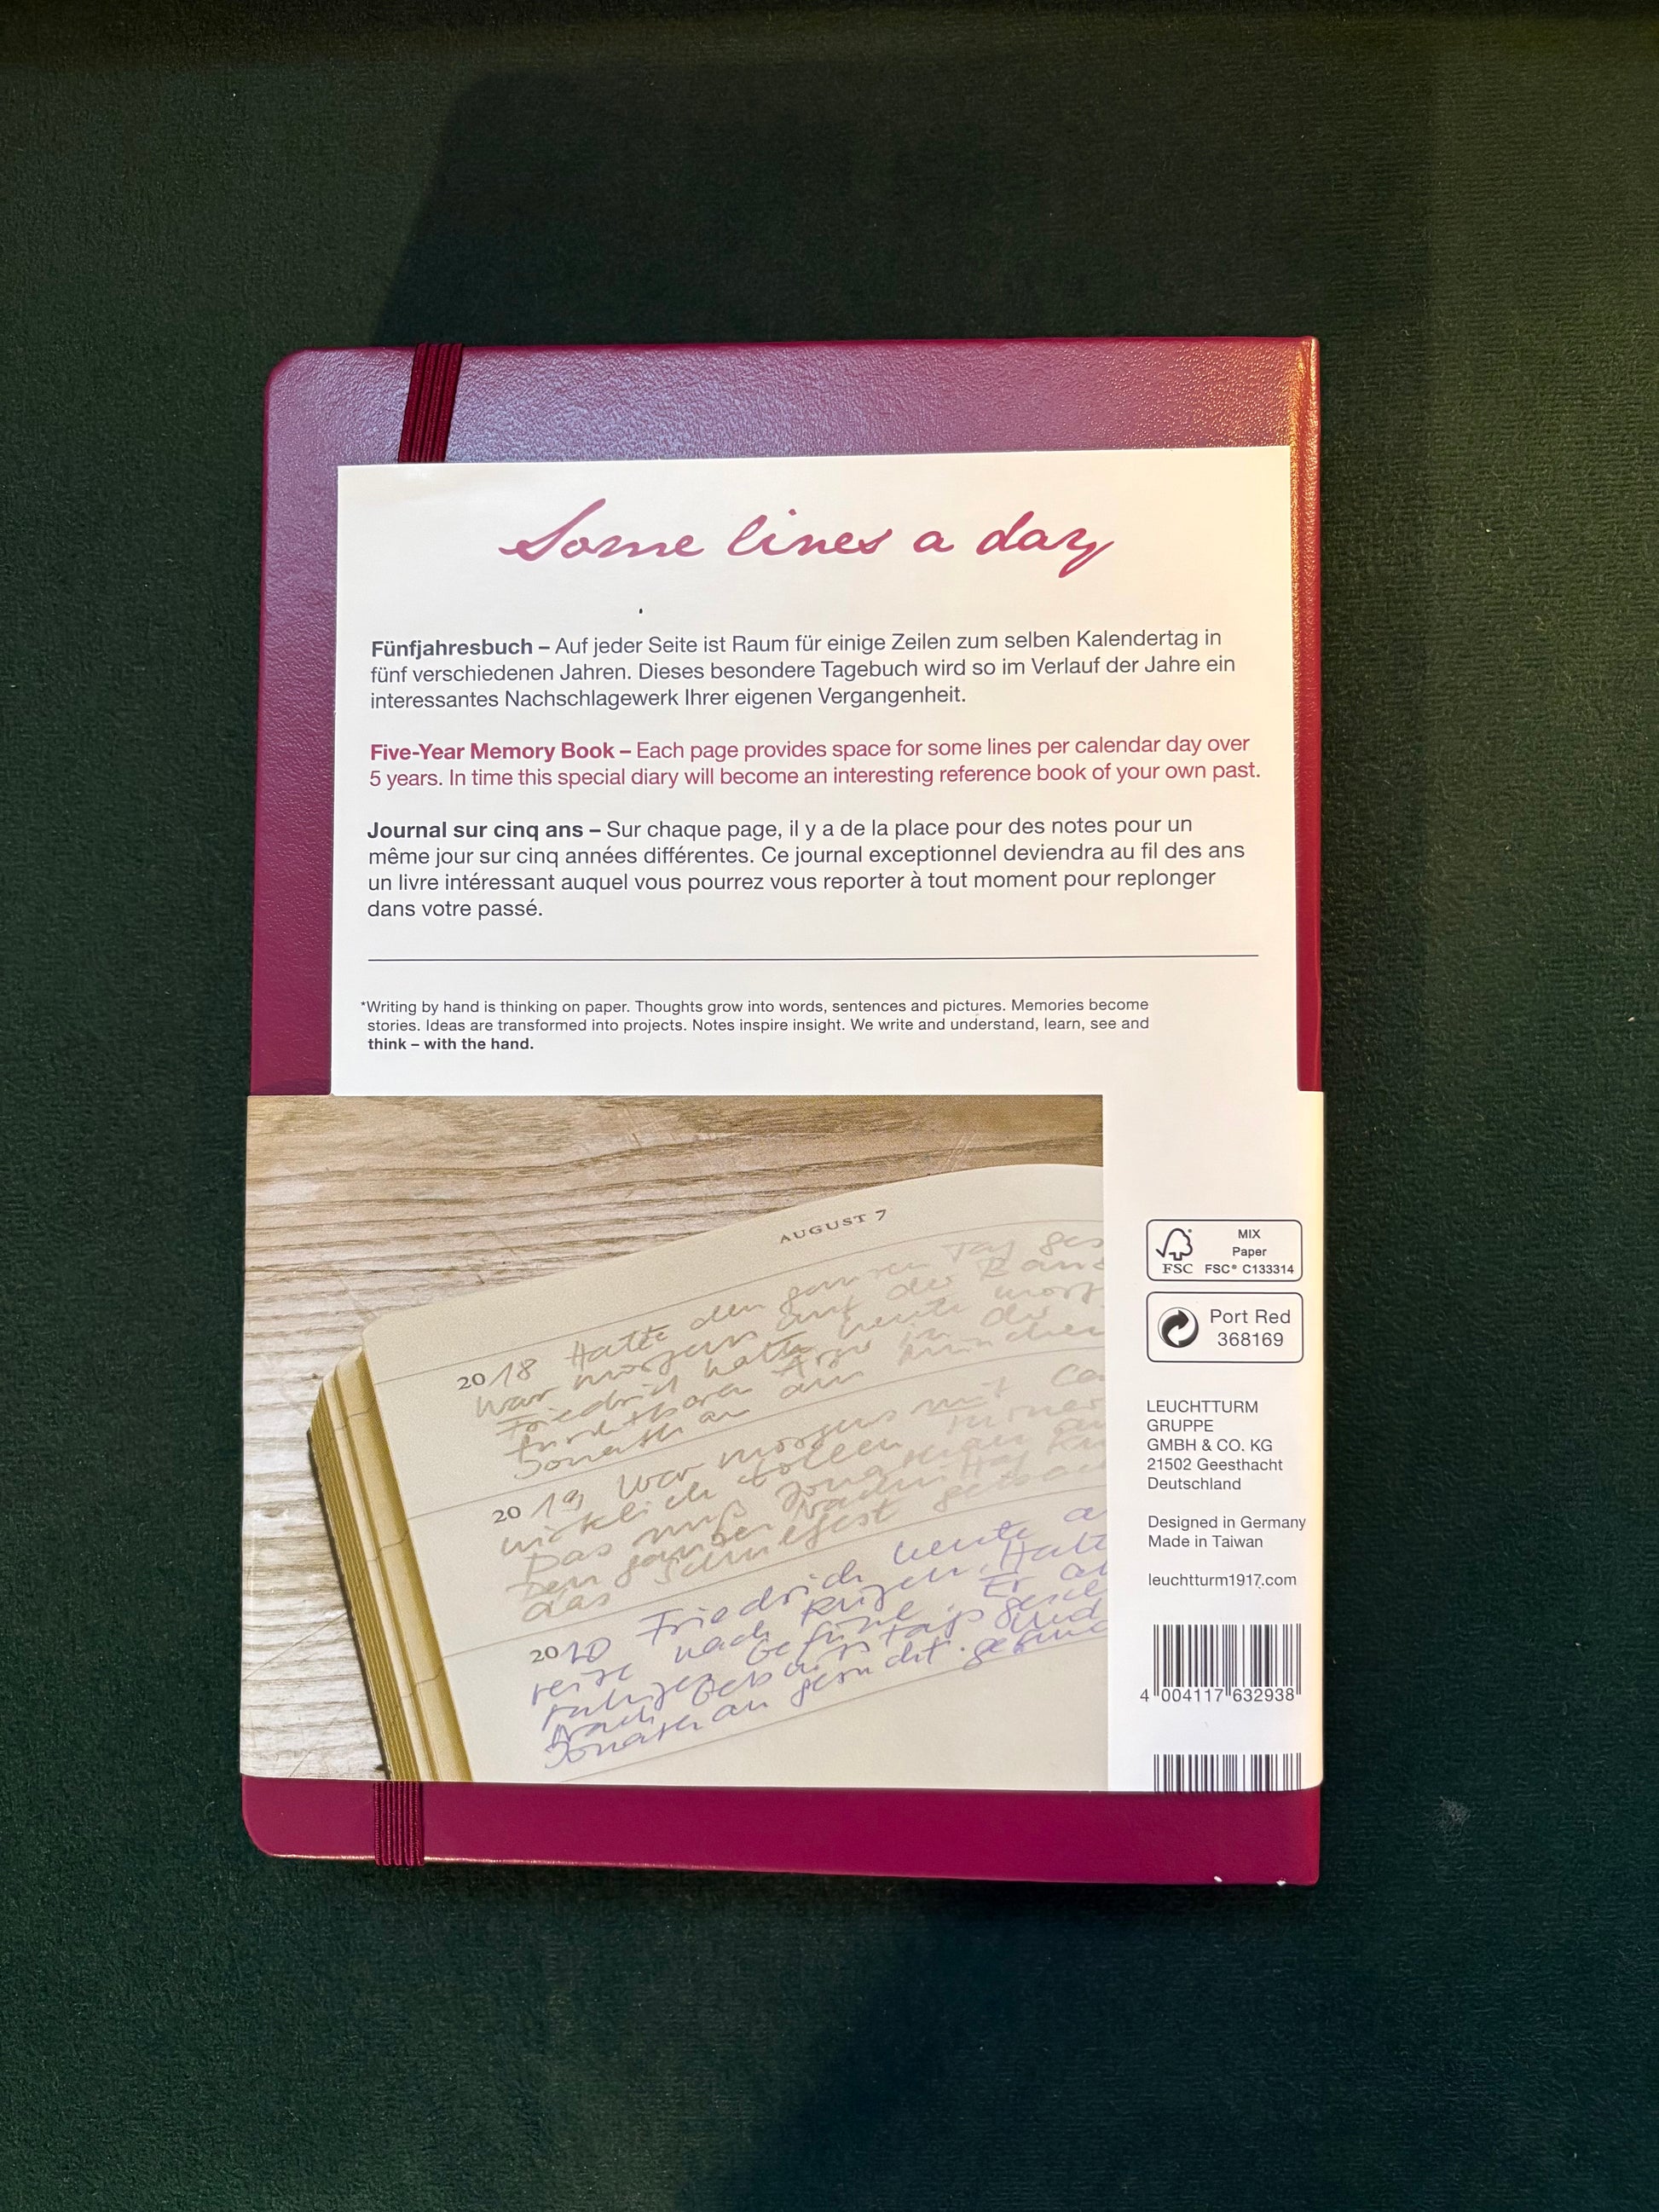 Some lines a day
Fünfjahresbuch – Auf jeder Seite ist Raum für einige Zeilen zum selben Kalendertag in
fünf verschiedenen Jahren. Dieses besondere Tagebuch wird so im Verlauf der Jahre ein
interessantes Nachschlagewerk Ihrer eigenen Vergangenheit.
Five-Year Memory Book – Each page provides space for some lines per calendar day over
5 years. In time this special diary will become an interesting reference book of your own past.
Journal sur cinq ans – Sur chaque page, il y a de la place pour des notes pour un
même jour sur cinq années différentes. Ce journal exceptionnel deviendra au fil des ans
un livre intéressant auquel vous pourrez vous reporter à tout moment pour replonger
dans votre passé.
*Writing by hand is thinking on paper. Thoughts grow into words, sentences and pictures. Memories become
stories. Ideas are transformed into projects. Notes inspire insight. We write and understand, learn, see and
think – with the hand.
AUGUST 7
2018 Hatte den ganzen Tag
war morgens auf der
Friedrich hatte heute
furchtbaren in die
Jonathan
2019 War morgens mit
wirklich tollen
Das muß Jonathan
Den ganzen Nachmittag
das Schulfest
2020 Friedrich heute
reise nach Rügen. Hatte
Gefühl. Er
Geburtstags
Jonathan gesucht. und
MIX
Paper
FSC FSC® C133314
Port Red
368169
LEUCHTTURM
GRUPPE
GMBH & CO. KG
21502 Geesthacht
Deutschland
Designed in Germany
Made in Taiwan
leuchtturm1917.com
4 004117 632938